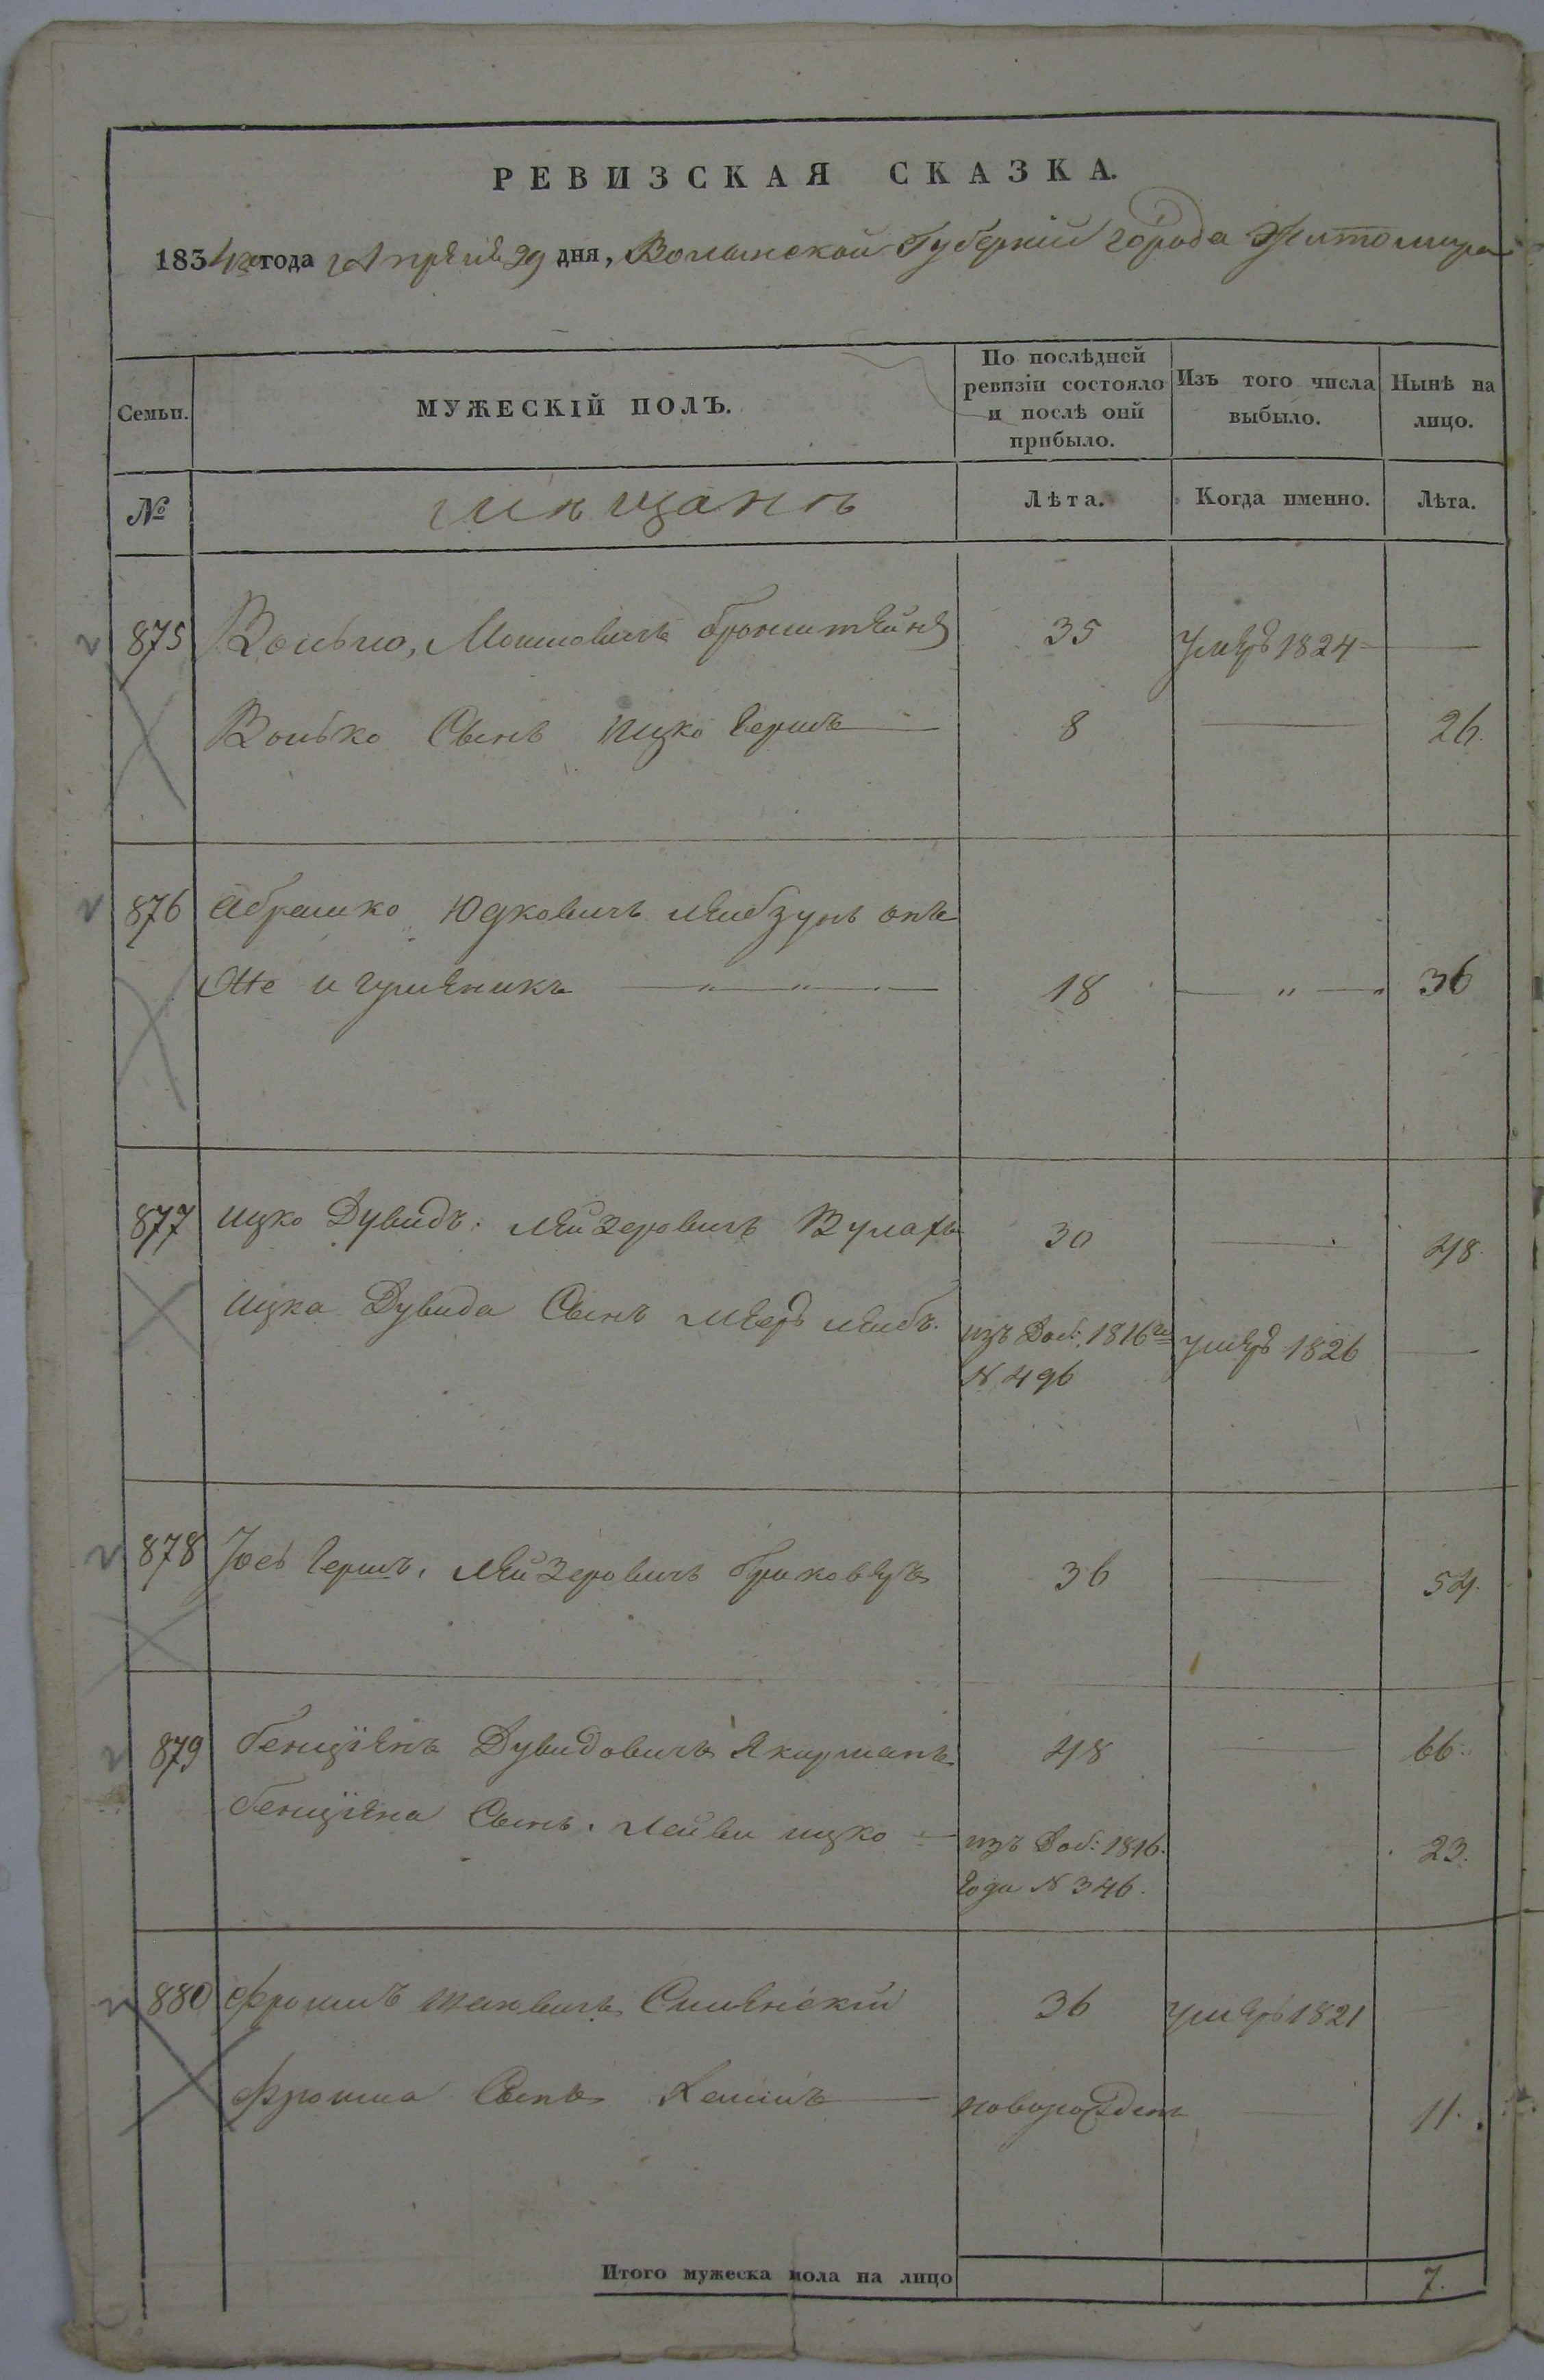 РЕВИЗСКАЯ СКАЗКА.
1834го года Апреля 29 дня, Волынской Губерніи города Житомира
Семьи.
МУЖЕСКІЙ ПОЛЪ.
По послѣдней ревизіи состояло и послѣ оній прибыло.
Изъ того числа выбыло.
Нынѣ на лицо.
№
Мѣщанъ
Лѣта.
Когда именно.
Лѣта.
875 Волько, Мошковичъ Бронштейнъ 35 Умеръ 1824 —
Волько Сынъ Ицко Гершъ — 8 — 26.
876 Абрамко Юдковичъ Лейбзунъ онъ
же и Гуменикъ — " — " — 18 — " — " 36
877 Ицко Дувидъ: Лейзеровичъ Вулахъ 30 — 48.
Ицка Дувида Сынъ Мееръ Лейбъ. изъ Доб: 1816го Умеръ 1826 —
N 496
878 Іось Гершъ, Лейзеровичъ 36 — 54.
879 Бенціенъ Дувидовичъ Якирманъ 48 — 66.
Бенціена Сынъ. Лейви Ицко — изъ Доб: 1816. 23.
Года N 346.
880 Фроимъ 36 Умеръ 1821
Фроима Сынъ Хаимъ — новорожденъ — 11.
Итого мужеска пола на лицо 7.